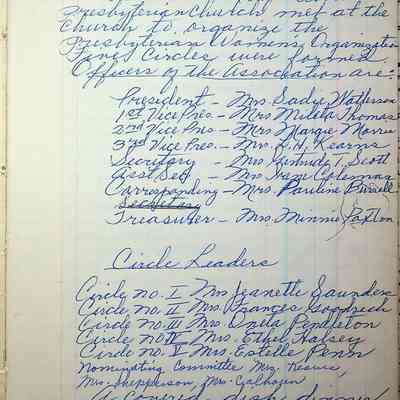 Presbyterian Church, met at the
Church to organize the
Presbyterian Womens Organization
Circles were formed.
Officers of the Association are:-
President - Mrs. Sadye Watterson
1st Vice Pres - Mrs Mileta Thomas
2nd Vice Pres - Mrs Margie Morris
3rd Vice Pres. - Mrs. R. H. Kearns
Secretary - Mrs. Gertrude T. Scott
Asst Sec - Mrs Coleman
Corresponding - Mrs. Pauline Pursell
Secretary
Treasurer - Mrs. Minnie Paxton
Circle Leaders
Circle No. I Mrs Jeanette Saunders
Circle No. II Mrs. Frances Goodrich
Circle No. III Mrs. Oneta Pendleton
Circle No IV Mrs. Ethel Halsey
Circle No. V Mrs. Estelle Penn
Nominating Committee Mrs.
Mrs. Shepperson, Mrs. Calhoun
A covered dish dinner